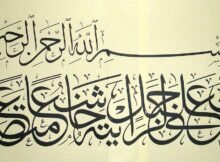 بسم الله الرحمن الرحيم
على جبل لرأيته خاشعا